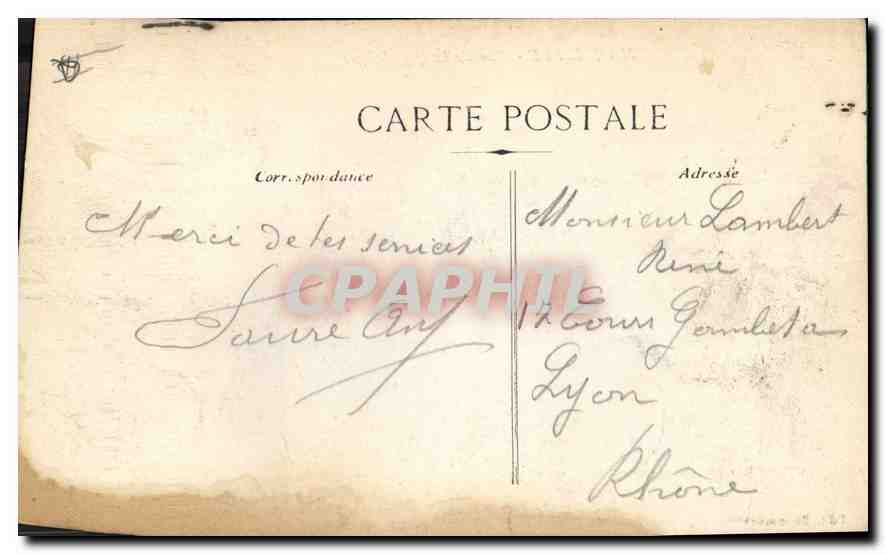 CARTE POSTALE
Correspondance
Adresse
Merci de tes services
Faure
Monsieur Lambert
René
12 Cours Gambetta
Lyon
Rhône
CPAPHIL